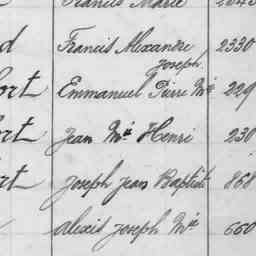 Francis Marie 2643
d Francis Alexandre 2330
Joseph
ort Emmanuel Pierre Mie 229
ort Jean Mie Henri 230
rt Joseph Jean Baptiste 868
Alexis Joseph Mie 660